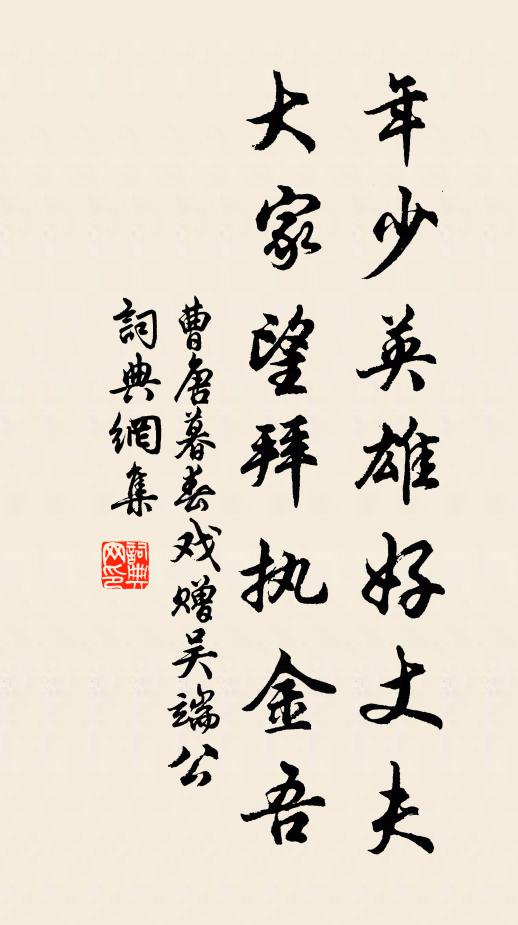 年少英雄好丈夫
大家望拜执金吾
曹唐暮春戏赠吴端公
詞典網集
詞典网印